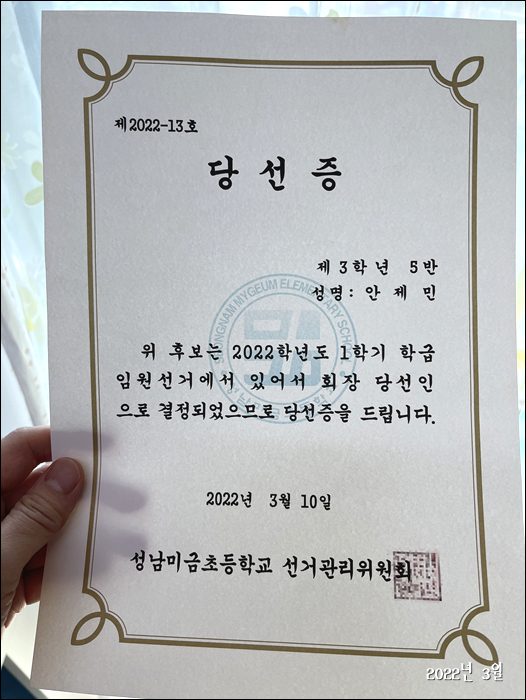 제2022-13호
당 선 증
제 3 학 년 5 반
성명: 안 제 민
SEONGNAM MYGEUM ELEMENTARY SCHOOL
위 후보는 2022학년도 1학기 학급
임원선거에서 있어서 회장 당선인
으로 결정되었으므로 당선증을 드립니다.
2022년 3월 10일
성남미금초등학교 선거관리위원회
2022년 3월